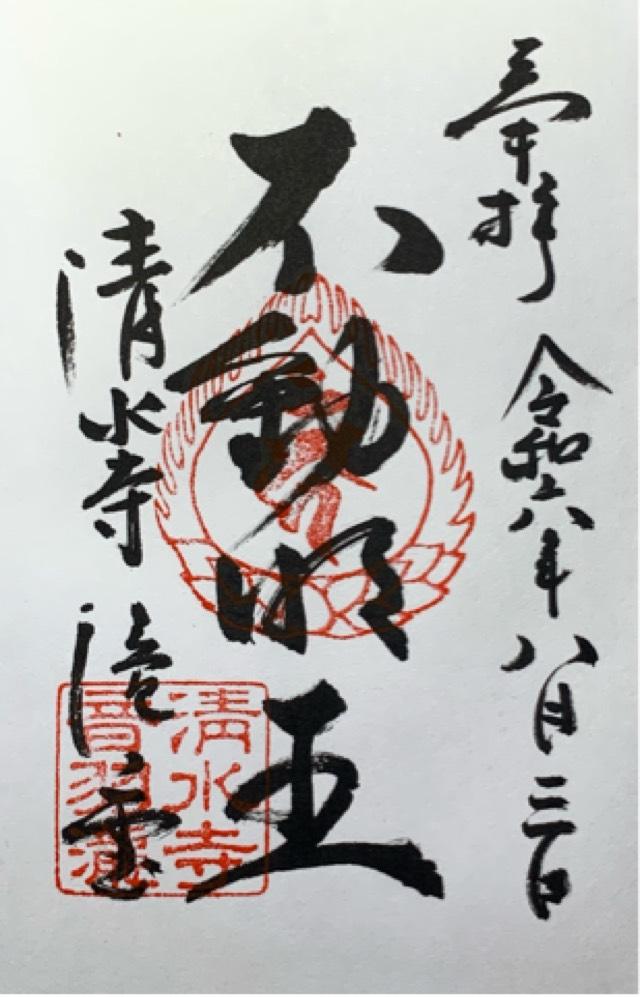 奉拝
令和六年八月三日
不動明王
清水寺 滝堂
清水寺
音羽瀧